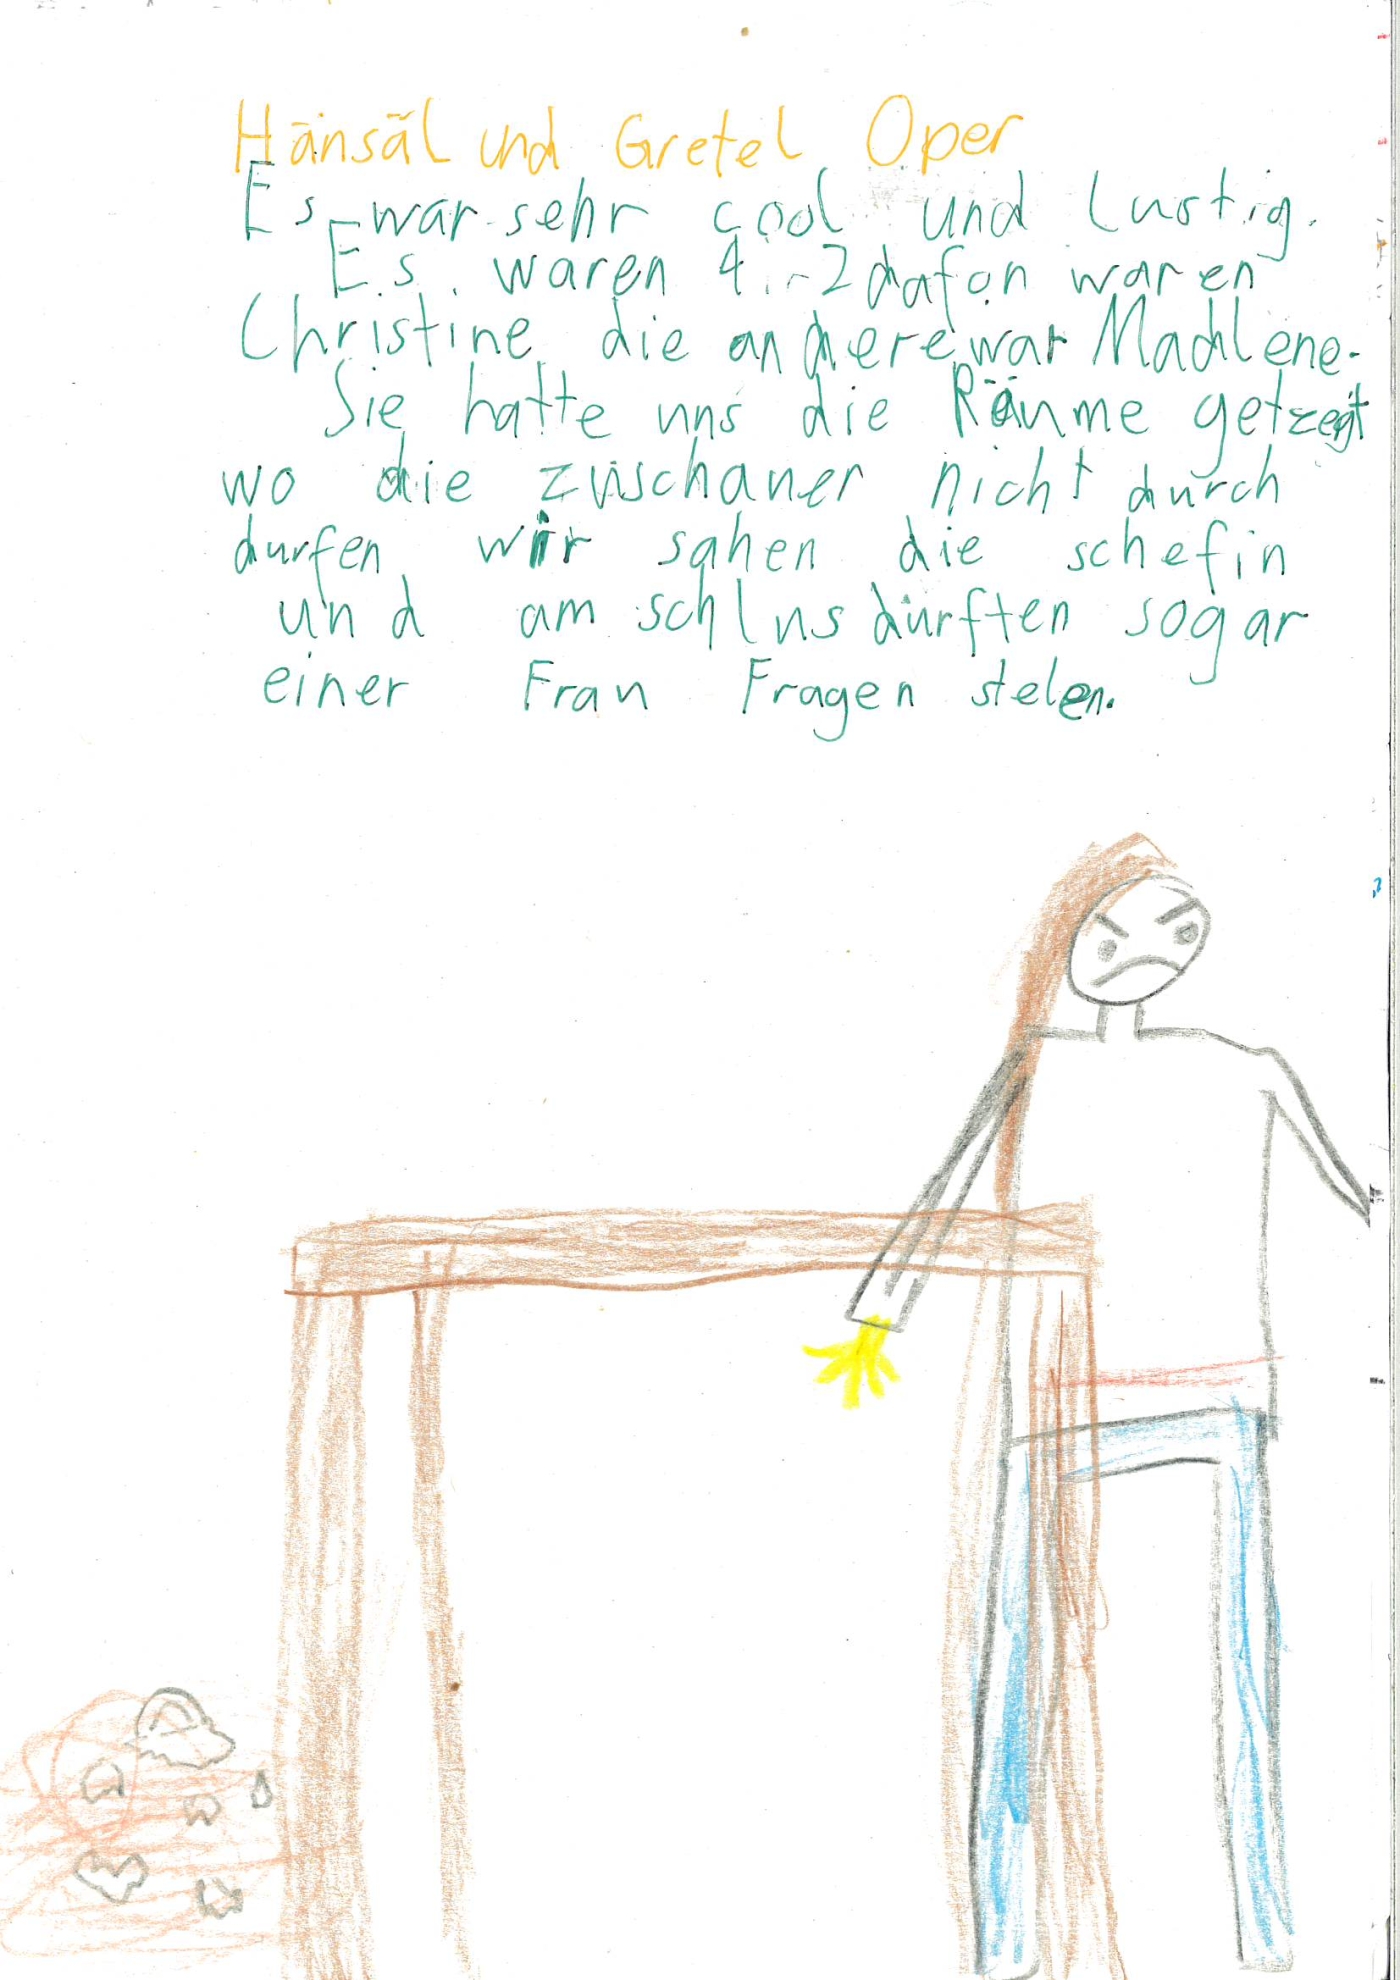 Hänsäl und Gretel Oper
Es war sehr cool und lustig.
Es waren 4 2 dafon waren
Christine die andere war Madlene.
Sie hatte uns die Räume getzeigt
wo die zuschauer nicht durch
durfen wir sahen die schefin
und am schlus durften sogar
einer Frau Fragen stelen.